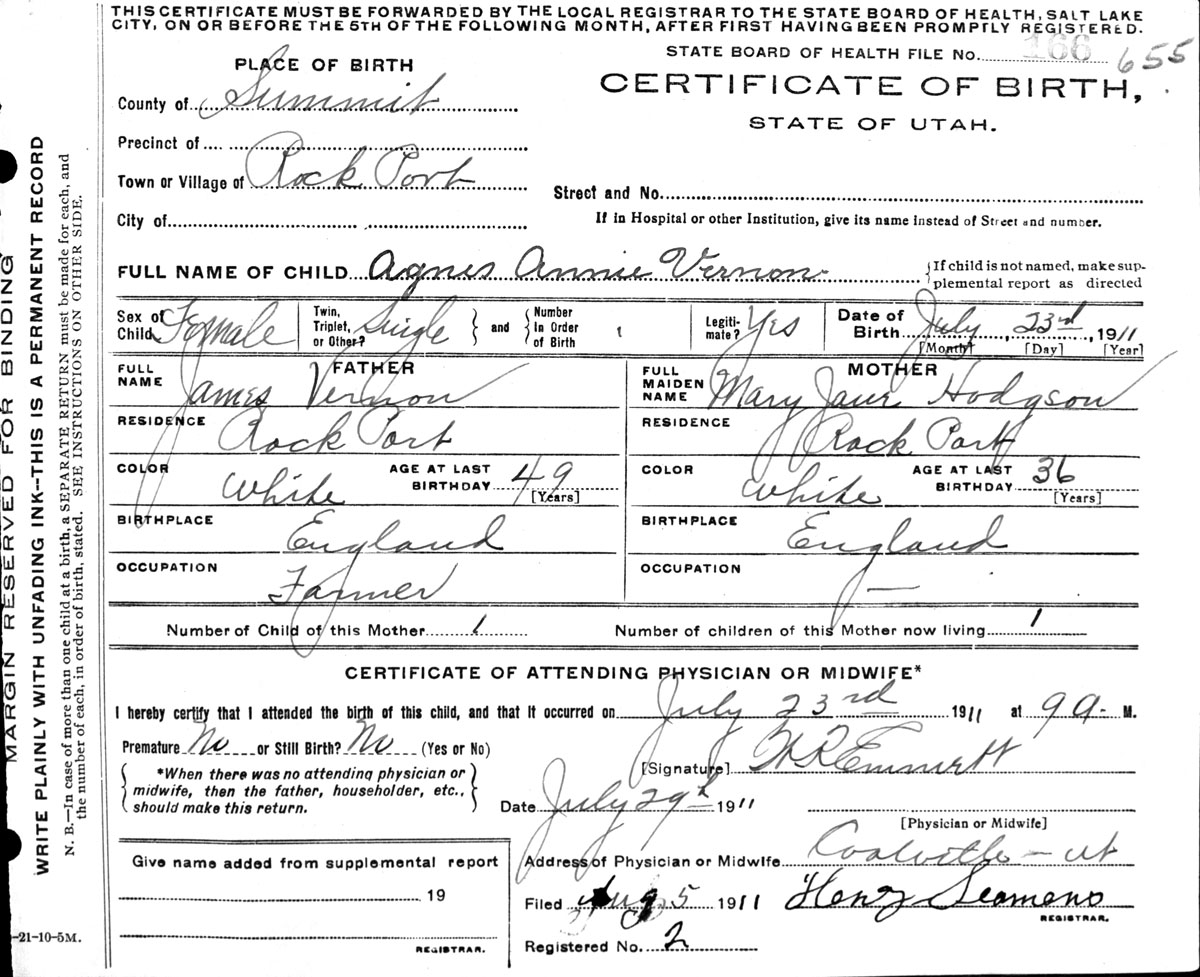 THIS CERTIFICATE MUST BE FORWARDED BY THE LOCAL REGISTRAR TO THE STATE BOARD OF HEALTH, SALT LAKE
CITY, ON OR BEFORE THE 5TH OF THE FOLLOWING MONTH, AFTER FIRST HAVING BEEN PROMPTLY REGISTERED.
STATE BOARD OF HEALTH FILE No. 166 655
PLACE OF BIRTH
CERTIFICATE OF BIRTH,
STATE OF UTAH.
County of Summit
Precinct of
Town or Village of Rock Port
Street and No.
City of
If in Hospital or other Institution, give its name instead of Street and number.
FULL NAME OF CHILD Agnes Annie Vernon
If child is not named, make sup-
plemental report as directed
Sex of Child Female
Twin, Triplet, or Other? Single
and
Number In Order of Birth 1
Legiti- mate? Yes
Date of Birth July, 23rd, 1911
[Month] [Day] [Year]
FATHER
FULL NAME James Vernon
RESIDENCE Rock Port
COLOR White AGE AT LAST BIRTHDAY 49
[Years]
BIRTHPLACE England
OCCUPATION Farmer
MOTHER
FULL MAIDEN NAME Mary Jane Hodgson
RESIDENCE Rock Port
COLOR White AGE AT LAST BIRTHDAY 36
[Years]
BIRTHPLACE England
OCCUPATION —
Number of Child of this Mother 1 Number of children of this Mother now living 1
CERTIFICATE OF ATTENDING PHYSICIAN OR MIDWIFE*
I hereby certify that I attended the birth of this child, and that it occurred on July 23rd 1911 at 9 A- M.
Premature No or Still Birth? No (Yes or No)
*When there was no attending physician or
midwife, then the father, householder, etc.,
should make this return.
[Signature] Emmett
Date July 29th 1911
[Physician or Midwife]
Give name added from supplemental report
19
REGISTRAR.
Address of Physician or Midwife Coalville - Ut
Filed Aug 5 1911 Henry Seamens
REGISTRAR.
Registered No. 2
-21-10-5M.
MARGIN RESERVED FOR BINDING
WRITE PLAINLY WITH UNFADING INK--THIS IS A PERMANENT RECORD
N. B.—In case of more than one child at a birth, a SEPARATE RETURN must be made for each, and
the number of each, in order of birth, stated. SEE INSTRUCTIONS ON OTHER SIDE.